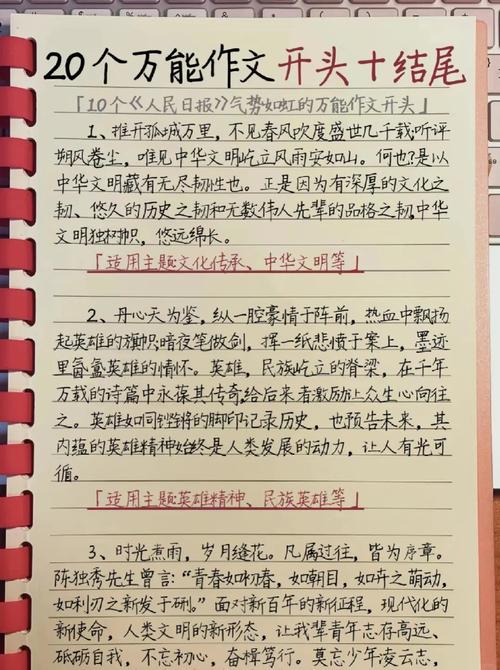 20个万能作文开头十结尾
「10个《人民日报》气势如虹的万能作文开头」
1、推开孤城万里,不见春风吹度盛世几千载听评
朔风卷尘,唯见中华文明屹立风雨安如山。何也?是以
中华文明藏有无尽韧性也。正是因为有深厚的文化之
韧、悠久的历史之韧和无数伟人先辈的品格之韧,中华
文明独树帜,悠远绵长。
「适用主题文化传承、中华文明等」
2、丹心天为鉴,纵一腔豪情于阵前,热血中飘扬
起英雄的旗帜暗夜笔做剑,挥一纸悲愤于案上,墨迹
里氤氲英雄的情怀。英雄,民族屹立的脊梁,在千年
万载的诗篇中永葆其传奇给后来者激励让众生心向往
之。英雄如同铿锵的脚印记录历史,也预告未来,其
内蕴的英雄精神始终是人类发展的动力,让人有光可
循。
「适用主题英雄精神、民族英雄等」
3、时光煮雨,岁月缝花。凡属过往,皆为序章。
陈独秀先生曾言:“青春如初春,如朝日,如卉之萌动,
如利刃之新发于硎。”面对新百年的新征程,现代化的
新使命,人类文明的新形态,让我辈青年志存高远、
砥砺自我,不忘初心,奋楫笃行。莫忘少年凌云志,